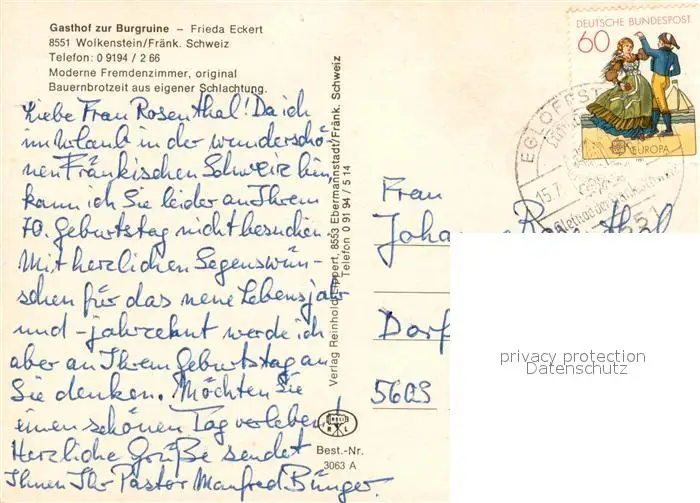 Gasthof zur Burgruine – Frieda Eckert
8551 Wolkenstein/Fränk. Schweiz
Telefon: 0 91 94 / 2 66
Moderne Fremdenzimmer, original
Bauernbrotzeit aus eigener Schlachtung.
Liebe Frau Rosenthal! Da ich
im Urlaub in der wunderschö-
nen Fränkischen Schweiz bin,
kann ich Sie leider an Ihrem
70. Geburtstag nicht besuchen.
Mit herzlichen Segenswün-
schen für das neue Lebensjahr
und -jahrzehnt werde ich
aber an Ihrem Geburtstag an
Sie denken. Möchten Sie
einen schönen Tag verleben!
Herzliche Grüße sendet
Ihnen Ihr Pastor Manfred Bünger.
Verlag Reinhold Lippert, 8553 Ebermannstadt/Fränk. Schweiz
Telefon 0 91 94 / 5 14
R L
Best.-Nr.
3063 A
DEUTSCHE BUNDESPOST
60
EUROPA
EGLOFFST
15.7
8551
Frau
Joha
Rosenthal
Dorf
5609
privacy protection
Datenschutz